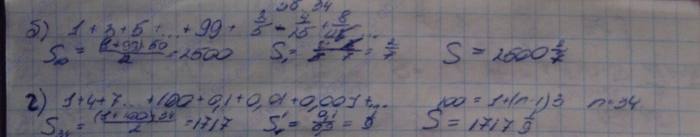 б) 1+3+5+...+99+ 3/5 - 4/25 + 8/
S₅₀ = (1+99)·50/2 = 2500 S₁ = = 2/7 S = 2500 2/7
г) 1+4+7...+100+0,1+0,01+0,001+... 100=1+(n-1)3 n=34
S₃₄ = (1+100)·34/2 = 1717 S = = 1/9 S = 1717 1/9